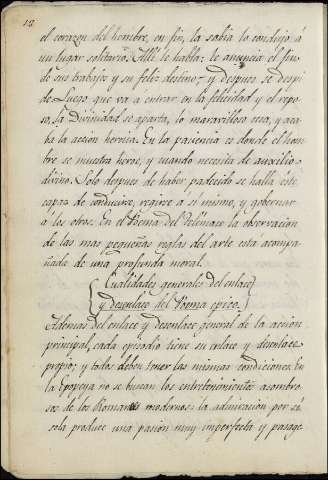 12
el corazon del hombre, en fin, la sabia lo condujo à
un lugar solitario. Alli le habla: le anuncia el fin
de sus trabajos y su feliz destino; y despues se despi
de. Luego que va a entrar en la felicidad y el repo
so, la Divinidad se aparta, lo maravilloso cesa, y aca
ba la accion heroica. En la paciencia es donde el hom
bre se muestra heroe, y cuando necesita de auxilio
divino. Solo despues de haber padecido se halla este
capaz de conducirse, regirse à si mismo, y gobernar
à los otros. En el Poema del Telémaco la observacion
de las mas pequeñas reglas del arte esta acompa
ñada de una profunda moral.
Cualidades generales del enlace
y desenlace del Poema epico.
Ademas del enlace y desenlace general de la accion
principal, cada episodio tiene su enlace y desenlace
propio; y todos deben tener las mismas condiciones. En
la Epopeya no se buscan los entretenimientos asombro
sos de los Romances modernos: la admiracion por sí
sola produce una pasion muy imperfecta y pasage